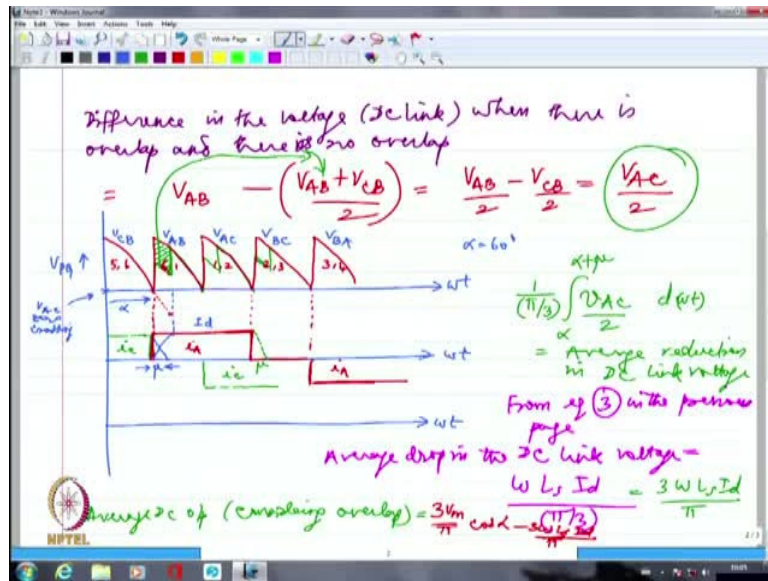 Note1 - Windows Journal
File Edit View Insert Actions Tools Help
Whole Page
Difference in the voltage (DC link) when there is
overlap and there is no overlap
= V_AB - (V_AB + V_CB / 2) = V_AB / 2 - V_CB / 2 = V_AC / 2
V_CB V_AB V_AC V_BC V_BA α = 60°
V_PQ ↑ 5,6 6,1 1,2 2,3 3,4 → ωt
V_AC zero crossing
α
1/(π/3) ∫_α^{α+μ} V_AC / 2 d(ωt)
= Average reduction
in DC link voltage
Id
i_c i_A → ωt
→ μ ← i_c μ i_A
→ ωt
From eq (3) in the previous
page
Average drop in the DC link voltage =
ω Ls Id / (π/3) = 3 ω Ls Id / π
Average DC op (considering overlap) = 3Vm/π cos α - 3ω Ls Id / π
NPTEL
2